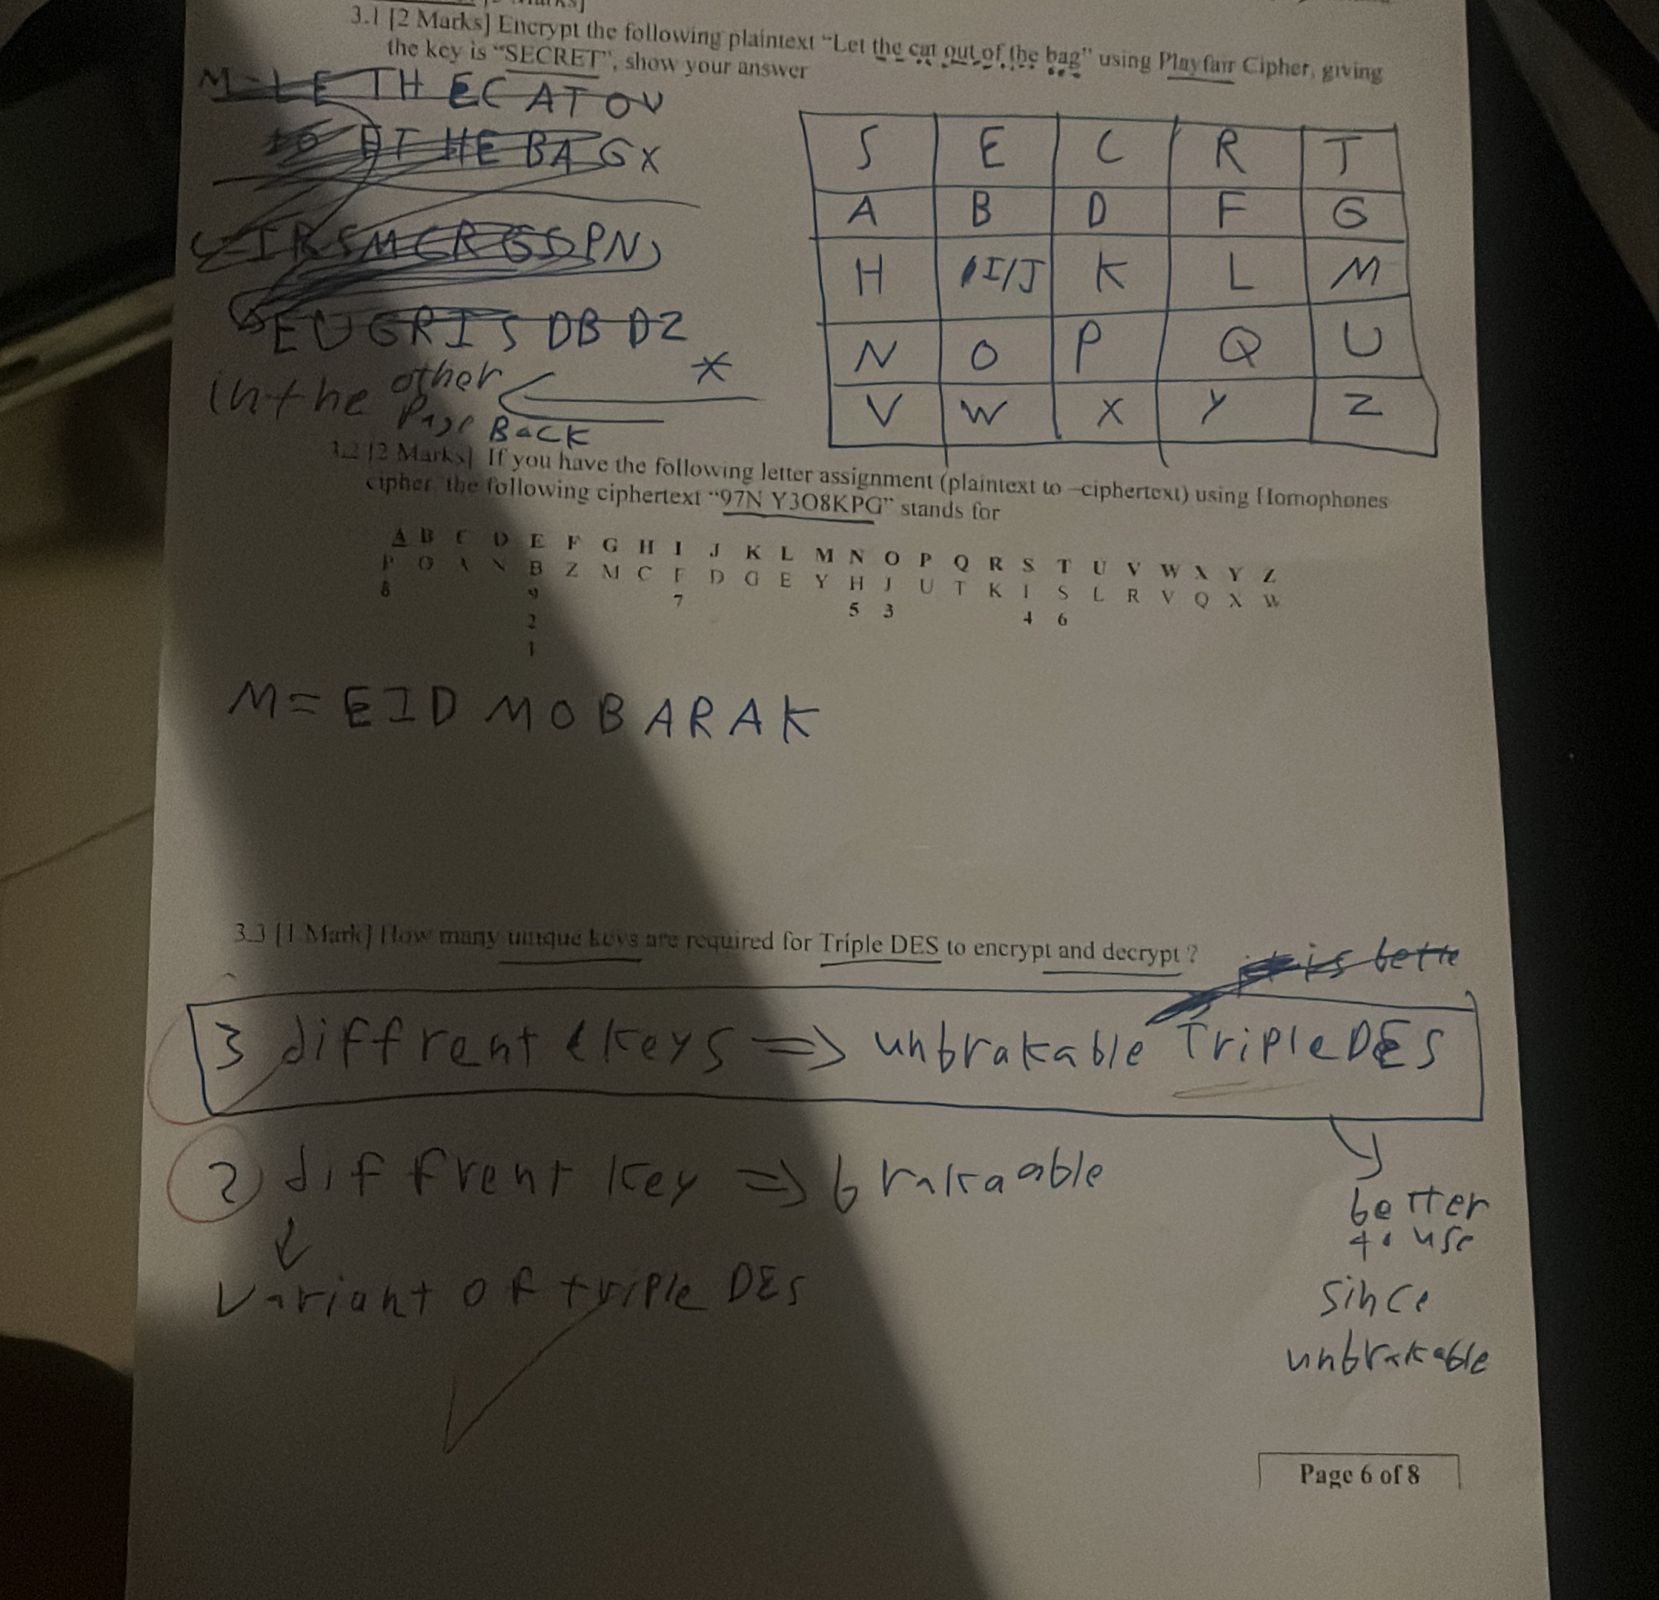 3.1 [2 Marks] Encrypt the following plaintext “Let the cat out of the bag” using Playfair Cipher, giving
the key is “SECRET”, show your answer
M=LE TH EC AT OU
THE BA GX
S E C R T
A B D F G
H I/J K L M
N O P Q U
V W X Y Z
EU GR IS DB DZ
*
in the other
Page BACK
3.2 [2 Marks] If you have the following letter assignment (plaintext to –ciphertext) using Homophones
cipher, the following ciphertext “97N Y3O8KPG” stands for
A B C D E F G H I J K L M N O P Q R S T U V W X Y Z
P O A N B Z M C F D G E Y H J U T K I S L R V Q X W
8 9 7 5 3 4 6
2
1
M= EID MOBARAK
3.3 [1 Mark] How many unique keys are required for Triple DES to encrypt and decrypt ?
is bette
3 diffrent keys => unbrakable Triple DES
2 diffrent key => brakaable
better
to use
since
unbrakable
variant of triple DES
Page 6 of 8